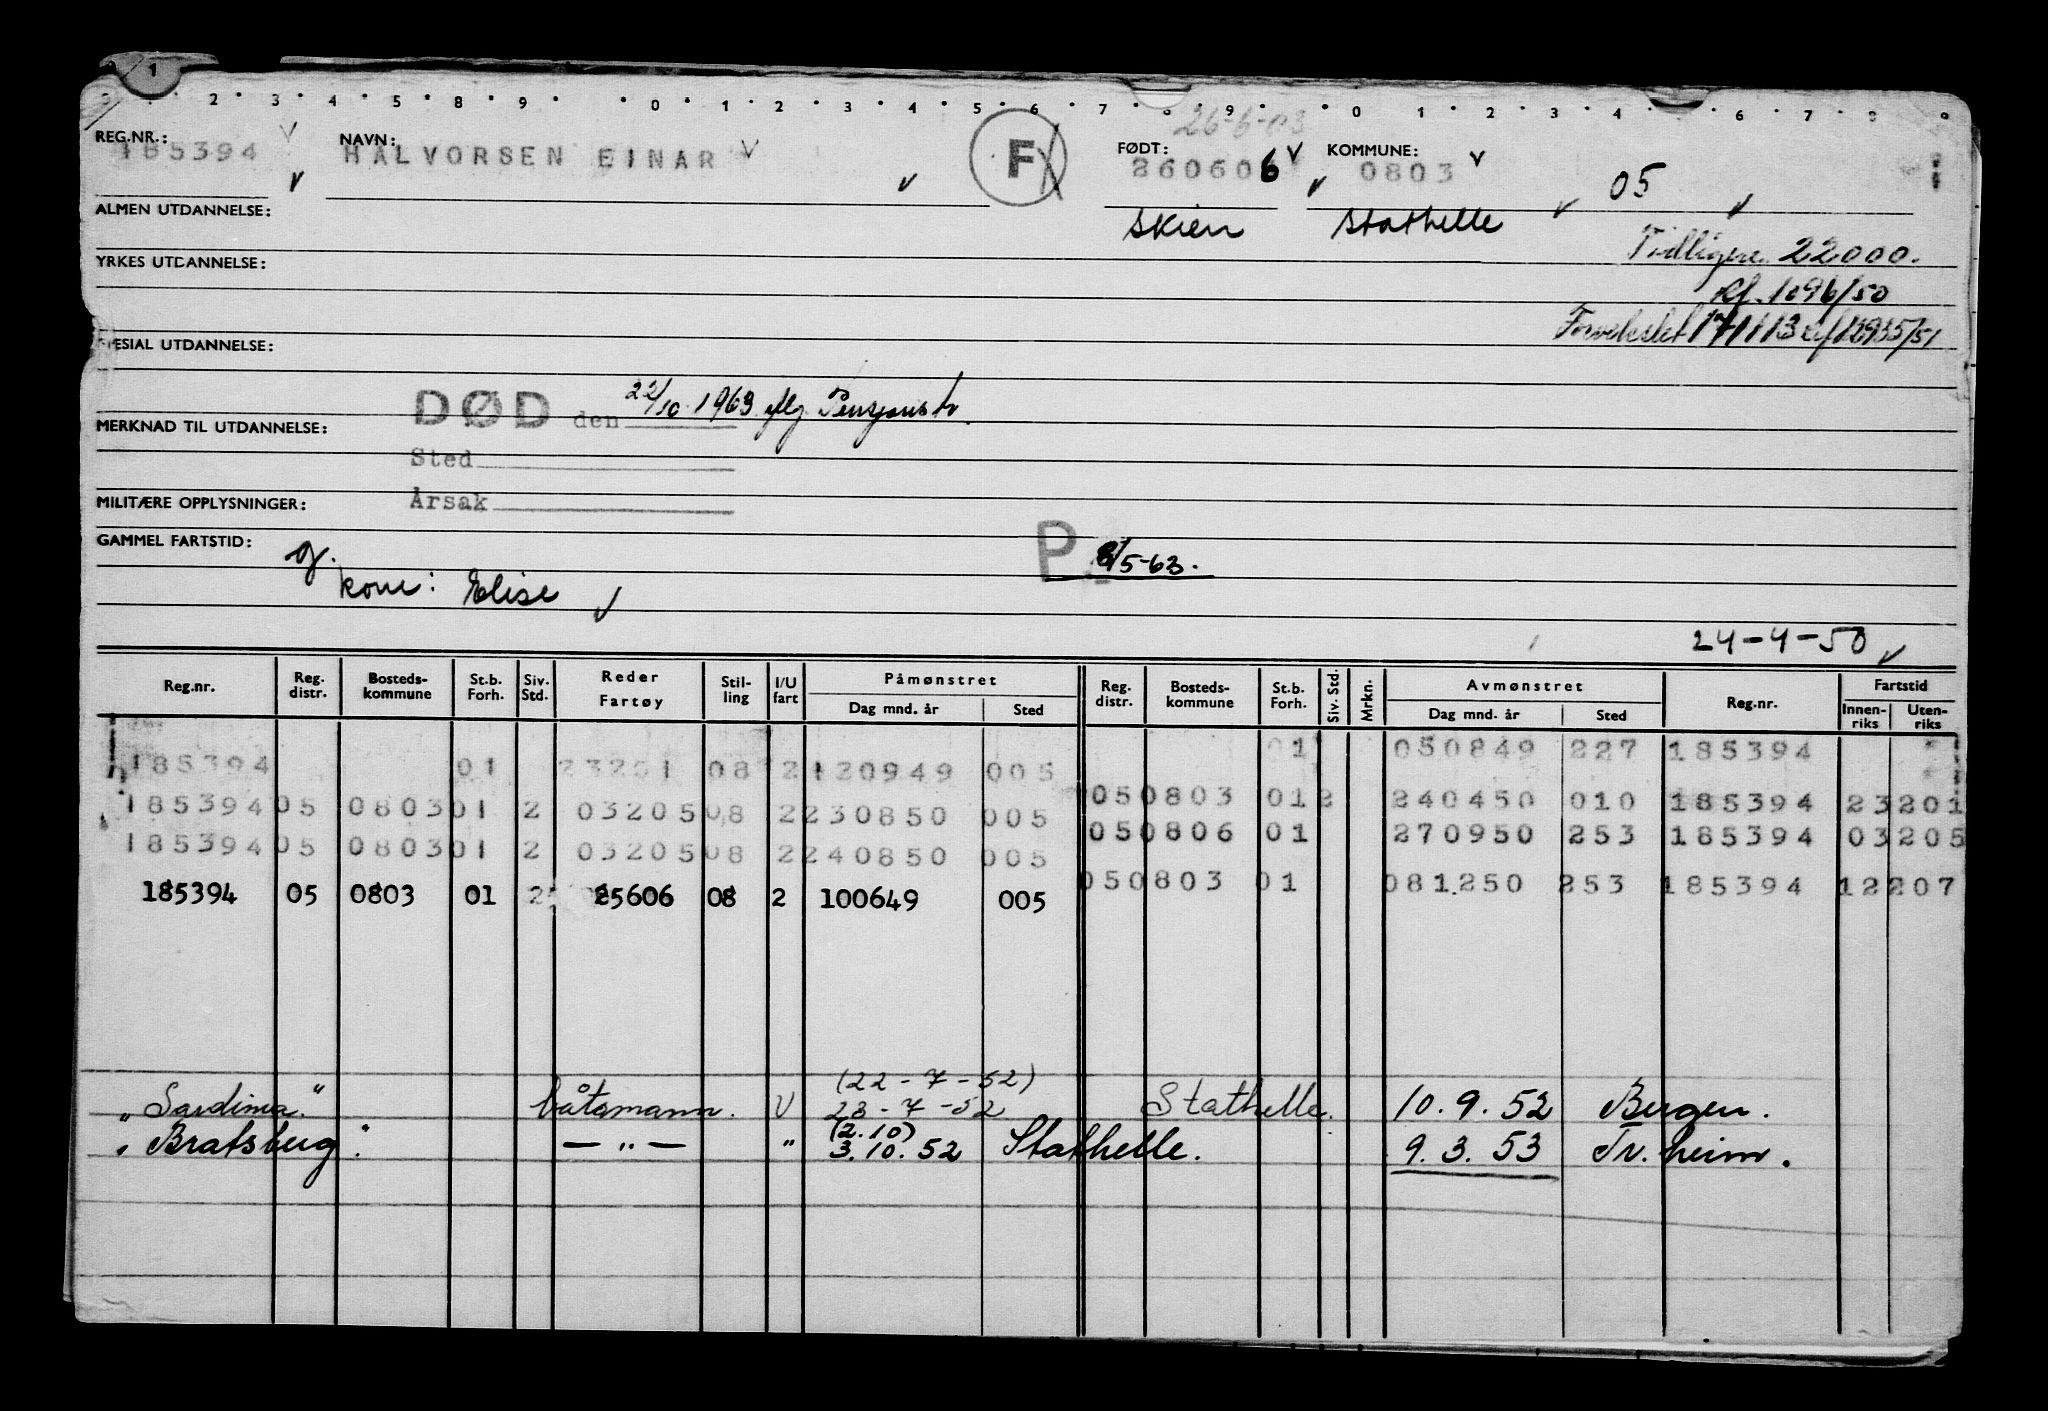 1
2 3 4 5 8 9 0 1 2 3 4 5 6 7 8 9 0 1 2 3 4 6 7 8 9
26-6-03
REG.NR.: NAVN: F FØDT: KOMMUNE:
185394 HALVORSEN EINAR 260606 0803 05
ALMEN UTDANNELSE: Skien Stathelle
Tidligere 22000.
YRKES UTDANNELSE:
Rf. 1096/50
Forvekslet 171113 Rf 12935/51
SPESIAL UTDANNELSE:
DØD den 22/10 1963 iflg Pensjonstr.
MERKNAD TIL UTDANNELSE:
Sted
MILITÆRE OPPLYSNINGER: Årsak
GAMMEL FARTSTID: g. P. 8/5-63.
kone: Elise
24-4-50
Reg.nr. Reg. distr. Bosteds-kommune St.b. Forh. Siv. Std. Reder Fartøy Stil-ling I/U fart Påmønstret Dag mnd. år Sted Reg. distr. Bosteds-kommune St.b. Forh. Siv. Std. Mrkn. Avmønstret Dag mnd. år Sted Reg.nr. Fartstid Innen-riks Uten-riks
01 050849 227 185394
185394 01 23201 08 2 120949 005 050803 01 2 240450 010 185394 23201
185394 05 0803 01 2 03205 08 2 230850 005 050806 01 270950 253 185394 03205
185394 05 0803 01 2 03205 08 2 240850 005 050803 01 081250 253 185394 12207
185394 05 0803 01 2 25606 08 2 100649 005
(22-7-52)
"Sardinia." båtsmann. U 23-7-52 Stathelle. 10.9.52 Bergen.
(2.10)
"Bratsberg". — " — " 3.10.52 Stathelle. 9.3.53 Tr.heim.